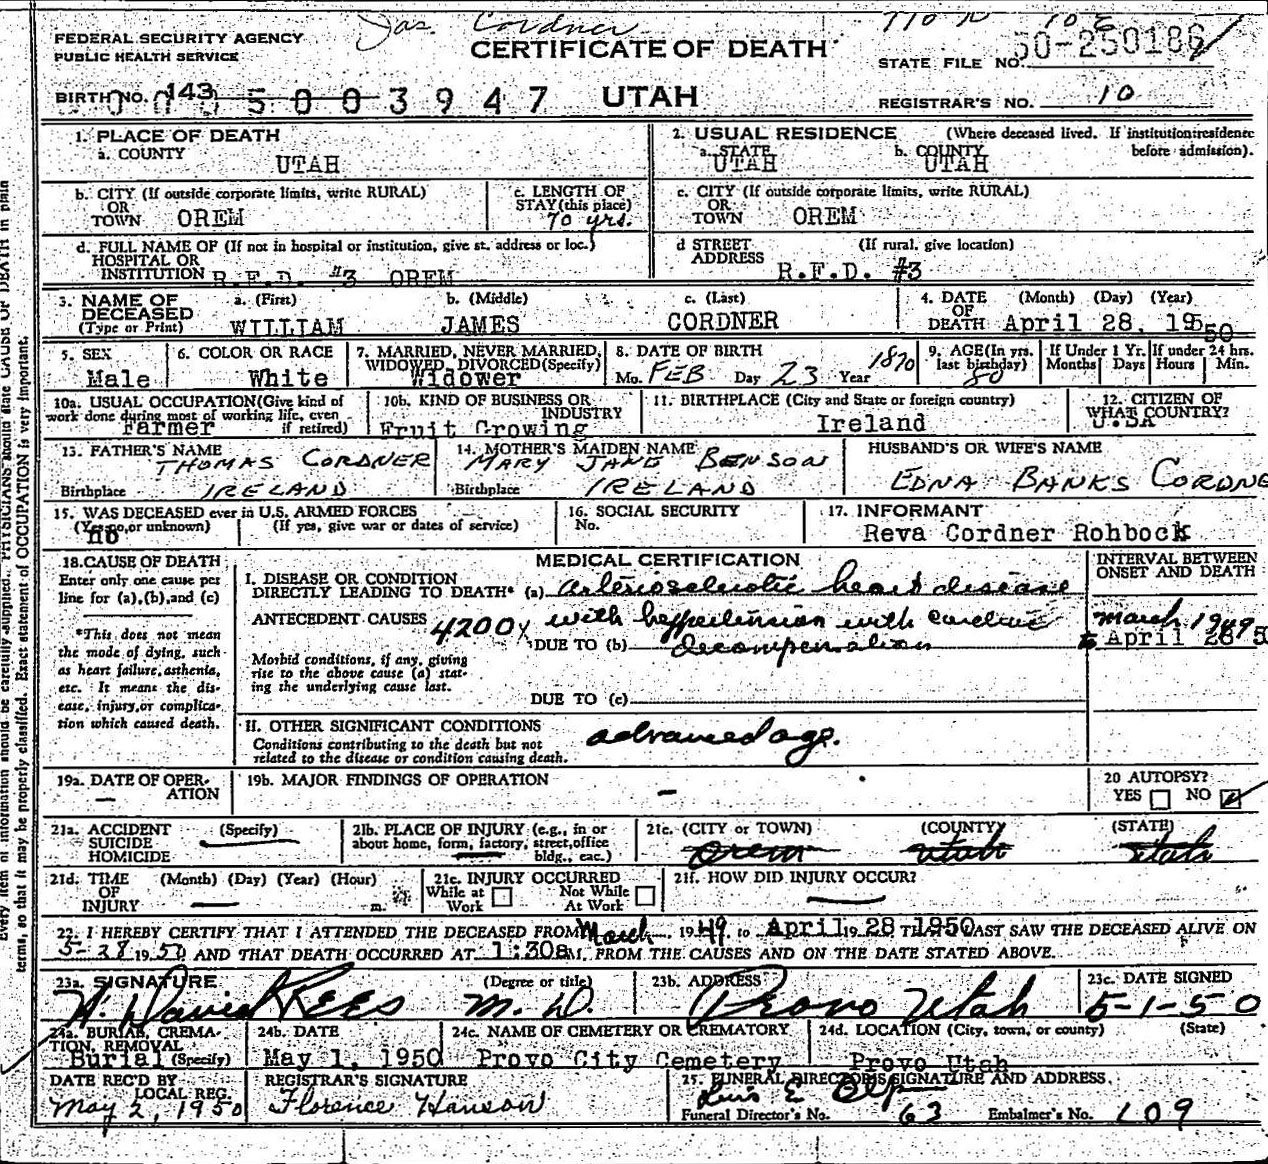 Jas. Cordner
FEDERAL SECURITY AGENCY
PUBLIC HEALTH SERVICE
CERTIFICATE OF DEATH
STATE FILE NO. 50-250186
BIRTH NO. 143
5003947 UTAH
REGISTRAR'S NO. 10
1. PLACE OF DEATH
a. COUNTY
UTAH
2. USUAL RESIDENCE (Where deceased lived. If institution: residence before admission).
a. STATE b. COUNTY
UTAH UTAH
b. CITY (If outside corporate limits, write RURAL)
OR
TOWN OREM
c. LENGTH OF
STAY (this place)
70 yrs.
c. CITY (If outside corporate limits, write RURAL)
OR
TOWN OREM
d. FULL NAME OF (If not in hospital or institution, give st. address or loc.)
HOSPITAL OR
INSTITUTION R.F.D. #3 OREM
d STREET (If rural, give location)
ADDRESS
R.F.D. #3
3. NAME OF
DECEASED
(Type or Print)
a. (First) b. (Middle) c. (Last)
WILLIAM JAMES CORDNER
4. DATE (Month) (Day) (Year)
OF
DEATH April 28, 1950
5. SEX
Male
6. COLOR OR RACE
White
7. MARRIED, NEVER MARRIED,
WIDOWED, DIVORCED (Specify)
Widower
8. DATE OF BIRTH
Mo. FEB Day 23 Year 1870
9. AGE (In yrs.
last birthday)
80
If Under 1 Yr.
Months Days
If under 24 hrs.
Hours Min.
10a. USUAL OCCUPATION (Give kind of
work done during most of working life, even
if retired)
Farmer
10b. KIND OF BUSINESS OR
INDUSTRY
Fruit Growing
11. BIRTHPLACE (City and State or foreign country)
Ireland
12. CITIZEN OF
WHAT COUNTRY?
U.SA
13. FATHER'S NAME
THOMAS CORDNER
Birthplace IRELAND
14. MOTHER'S MAIDEN NAME
MARY JANE BENSON
Birthplace IRELAND
HUSBAND'S OR WIFE'S NAME
EDNA BANKS CORDNE
15. WAS DECEASED ever in U.S. ARMED FORCES
(Yes, no, or unknown) (If yes, give war or dates of service)
no
16. SOCIAL SECURITY
No.
17. INFORMANT
Reva Cordner Rohbock
18. CAUSE OF DEATH
Enter only one cause per
line for (a), (b), and (c)
*This does not mean
the mode of dying, such
as heart failure, asthenia,
etc. It means the dis-
ease, injury, or complica-
tion which caused death.
MEDICAL CERTIFICATION
I. DISEASE OR CONDITION
DIRECTLY LEADING TO DEATH* (a) arteriosclerotic heart disease
ANTECEDENT CAUSES 4200 with hypertension with cardiac
DUE TO (b) decompensation
Morbid conditions, if any, giving
rise to the above cause (a) stat-
ing the underlying cause last.
DUE TO (c)
II. OTHER SIGNIFICANT CONDITIONS
Conditions contributing to the death but not
related to the disease or condition causing death.
advanced age.
INTERVAL BETWEEN
ONSET AND DEATH
March 1949
to April 28 5
19a. DATE OF OPER-
ATION
19b. MAJOR FINDINGS OF OPERATION
20 AUTOPSY?
YES NO
21a. ACCIDENT (Specify)
SUICIDE
HOMICIDE
21b. PLACE OF INJURY (e.g., in or
about home, form, factory, street, office
bldg., eac.)
21c. (CITY or TOWN) (COUNTY) (STATE)
Orem Utah Utah
21d. TIME (Month) (Day) (Year) (Hour)
OF
INJURY m.
21e. INJURY OCCURRED
While at Work Not While At Work
21f. HOW DID INJURY OCCUR?
22. I HEREBY CERTIFY THAT I ATTENDED THE DECEASED FROM March 1949 to April 28 1950 THAT I LAST SAW THE DECEASED ALIVE ON
5-28 1950 AND THAT DEATH OCCURRED AT 1:30a M. FROM THE CAUSES AND ON THE DATE STATED ABOVE.
23a. SIGNATURE (Degree or title)
W. David Rees M.D.
23b. ADDRESS
Provo Utah
23c. DATE SIGNED
5-1-50
24a. BURIAL, CREMA-
TION, REMOVAL
Burial (Specify)
24b. DATE
May 1, 1950
24c. NAME OF CEMETERY OR CREMATORY
Provo City Cemetery
24d. LOCATION (City, town, or county) (State)
Provo Utah
DATE REC'D BY
LOCAL REG.
May 2, 1950
REGISTRAR'S SIGNATURE
Florence Hanson
25. FUNERAL DIRECTOR'S SIGNATURE AND ADDRESS
Funeral Director's No. 63 Embalmer's No. 109
Every item of information should be carefully supplied. PHYSICIANS should state CAUSE OF DEATH in plain
terms, so that it may be properly classified. Exact statement of OCCUPATION is very important.